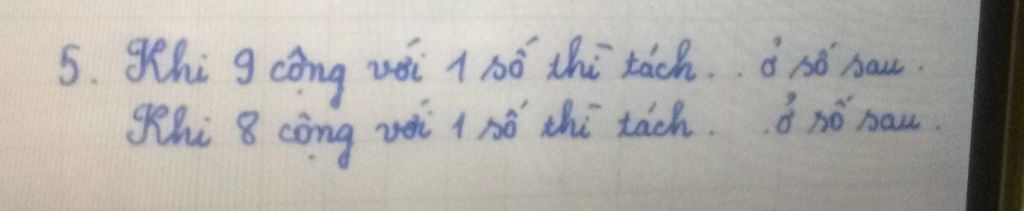 5. Khi 9 cộng với 1 số thì tách . . ở số sau.
Khi 8 cộng với 1 số thì tách . . ở số sau.